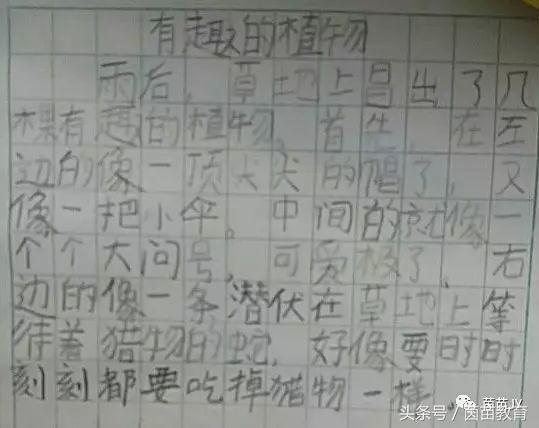 有趣的植物
雨后，草地上冒出了几
棵有趣的植物，首先，在左
边的像一顶尖尖的帽子，又
像一把小伞。中间的就像一
个个大问号，可爱极了，右
边的像一条潜伏在草地上等
待着猎物的蛇，好像要时时
刻刻都要吃掉猎物一样。
茵茵JY
头条号/茵苗教育